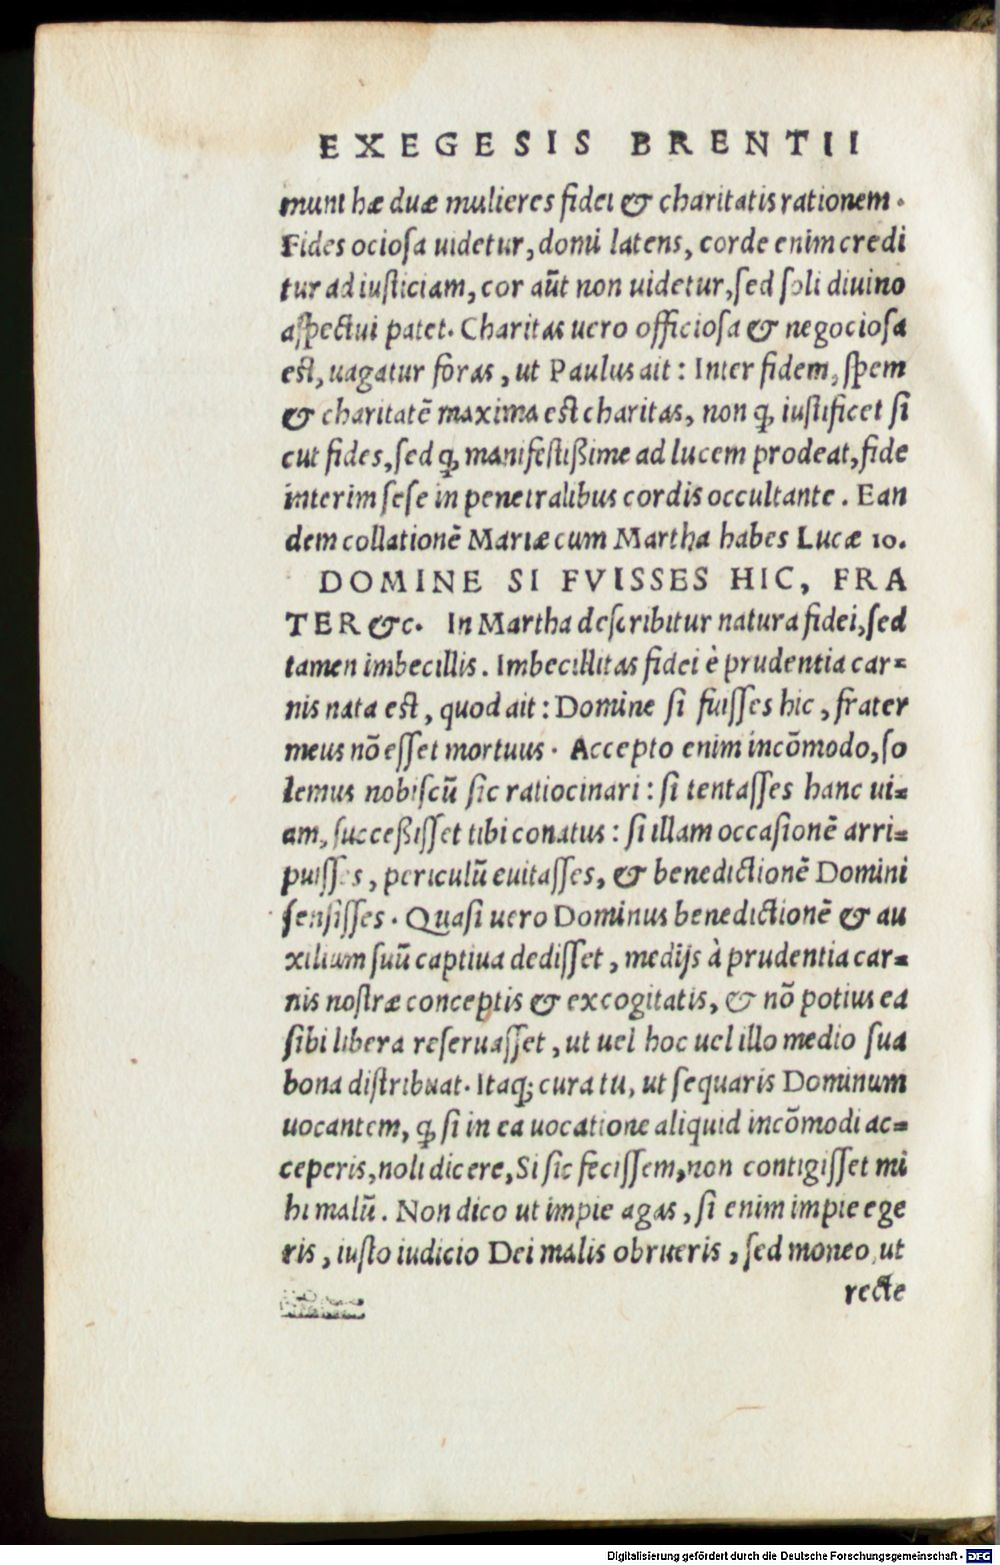 EXEGESIS BRENTII
munt hæ duæ mulieres fidei & charitatis rationem.
Fides ociosa uidetur, domi latens, corde enim credi
tur ad iusticiam, cor aūt non uidetur, sed soli diuino
aspectui patet. Charitas uero officiosa & negociosa
est, uagatur foras, ut Paulus ait: Inter fidem, spem
& charitatē maxima est charitas, non ꝙ iustificet si
cut fides, sed ꝙ manifestißime ad lucem prodeat, fide
interim sese in penetralibus cordis occultante. Ean
dem collationē Mariæ cum Martha habes Lucæ 10.
DOMINE SI FVISSES HIC, FRA
TER &c. In Martha describitur natura fidei, sed
tamen imbecillis. Imbecillitas fidei è prudentia car=
nis nata est, quod ait: Domine si fuisses hic, frater
meus nō esset mortuus. Accepto enim incōmodo, so
lemus nobiscū sic ratiocinari: si tentasses hanc ui=
am, succeßisset tibi conatus: si illam occasionē arri=
puisses, periculū euitasses, & benedictionē Domini
sensisses. Quasi uero Dominus benedictionē & au
xilium suū captiua dedisset, medijs à prudentia car=
nis nostræ conceptis & excogitatis, & nō potius ea
sibi libera reseruasset, ut uel hoc uel illo medio sua
bona distribuat. Itaq; cura tu, ut sequaris Dominum
uocantem, ꝙ si in ea uocatione aliquid incōmodi ac=
ceperis, noli dicere, Si sic fecissem, non contigisset mi
hi malū. Non dico ut impie agas, si enim impie ege
ris, iusto iudicio Dei malis obrueris, sed moneo, ut
recte
Digitalisierung gefördert durch die Deutsche Forschungsgemeinschaft - DFG